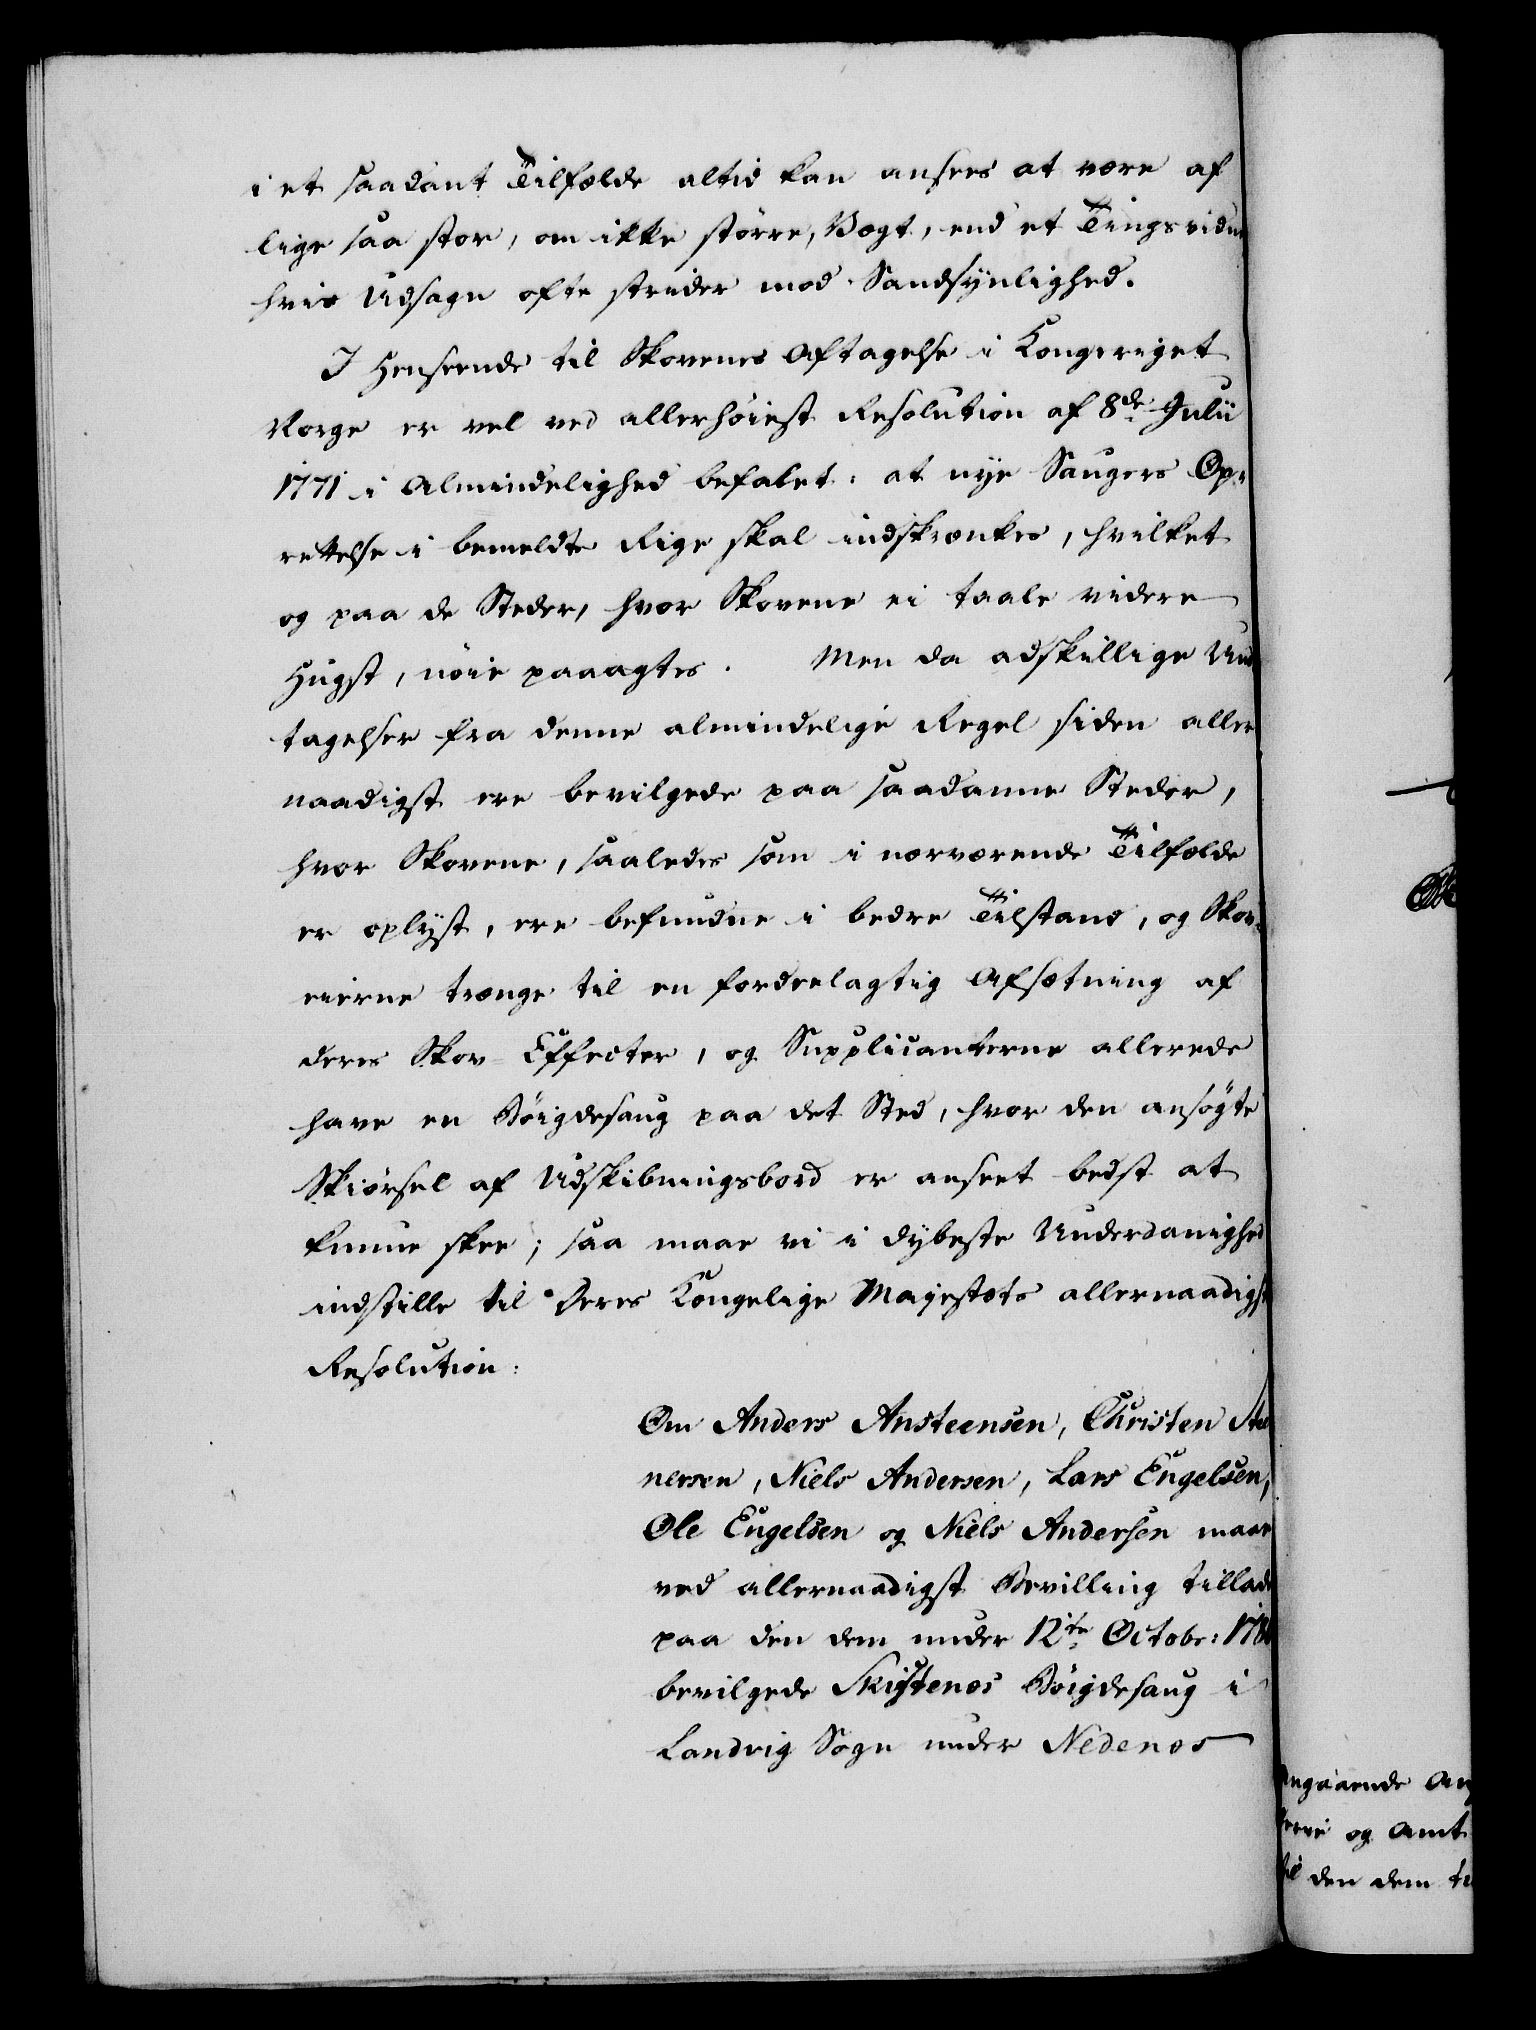 i et saadant Tilfælde altid kan ansees at være af
lige saa stor, om ikke större, Vægt, end et Tingsvidne
hvis Udsagn ofte strider mod Sandsÿnlighed.
I Henseende til Skovenes Aftagelse i Kongeriget
Norge er vel ved allerhöiest Resolution af 8de Julii
1771 i Almindelighed befalet: at nye Saugers Op-
rettelse i bemeldte Rige skal indskrænkes, hvilket
og paa de Steder, hvor Skovene ei taale videre
Hugst, nöie paaagtes. Men da adskillige Und
tagelser fra denne almindelige Regel siden aller
naadigst ere bevilgede paa saadanne Steder,
hvor Skovene, saaledes som i nærværende Tilfælde
er oplÿst, ere befundne i bedre Tilstand, og Skov-
eierne trænge til en fordeelagtig Afsætning af
deres Skov-Effecter, og Supplicanterne allerede
have en Böigdesaug paa det Sted, hvor den ansögte
Skiörsel af Udskibningsbord er anseet bedst at
kunne skee; saa maae vi i dybeste Underdanighed
indstille til Deres Kongelige Majestæts allernaadigste
Resolution:
Om Anders Ansteensen, Christen Stee
nersen, Niels Andersen, Lars Engelsen,
Ole Engelsen og Niels Andersen maae
ved allernaadigst Bevilling tillades
paa den dem under 12te Octobr: 178
bevilgede Skiftenes Böigdesaug i
Landvig Sogn under Nedenes
angaaende
og Amt
den dem